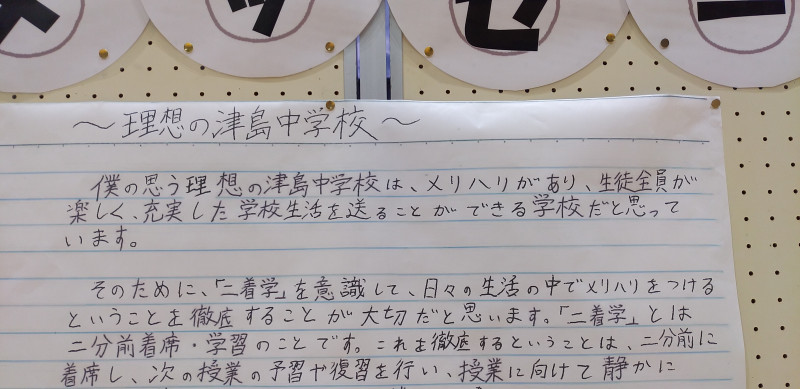 ッセー
～理想の津島中学校～
僕の思う理想の津島中学校は、メリハリがあり、生徒全員が
楽しく、充実した学校生活を送ることができる学校だと思って
います。
そのために、「二着学」を意識して、日々の生活の中でメリハリをつける
ということを徹底することが大切だと思います。「二着学」とは
二分前着席・学習のことです。これを徹底するということは、二分前に
着席し、次の授業の予習や復習を行い、授業に向けて静かに